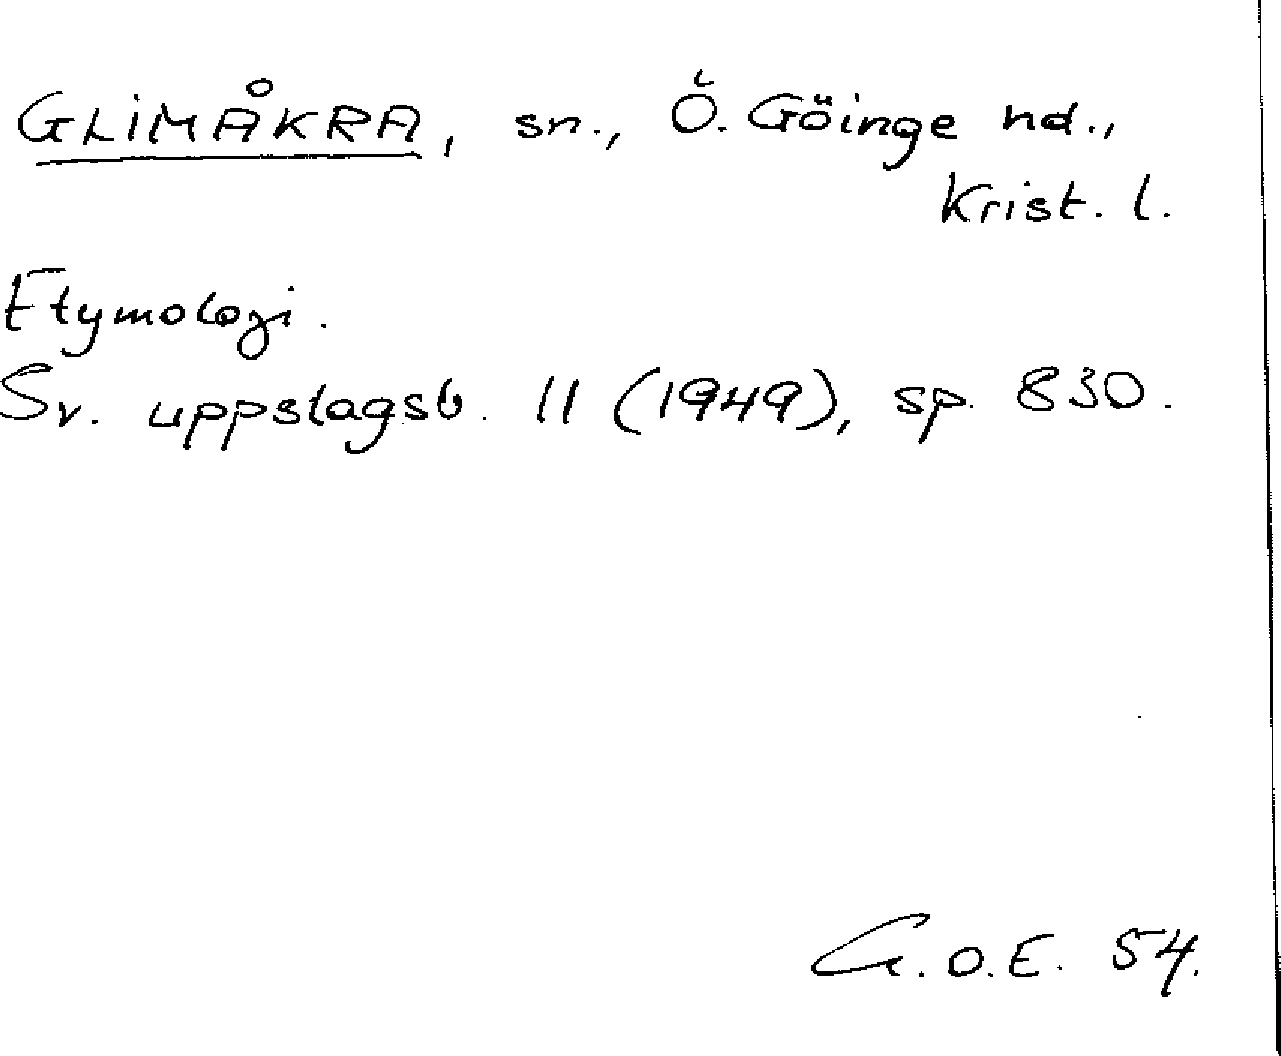 GLIMÅKRA, sn., Ö. Göinge hd.,
Krist. l.
Etymologi.
Sv. uppslagsb. 11 (1949), sp. 830.
G.O.E. 54.